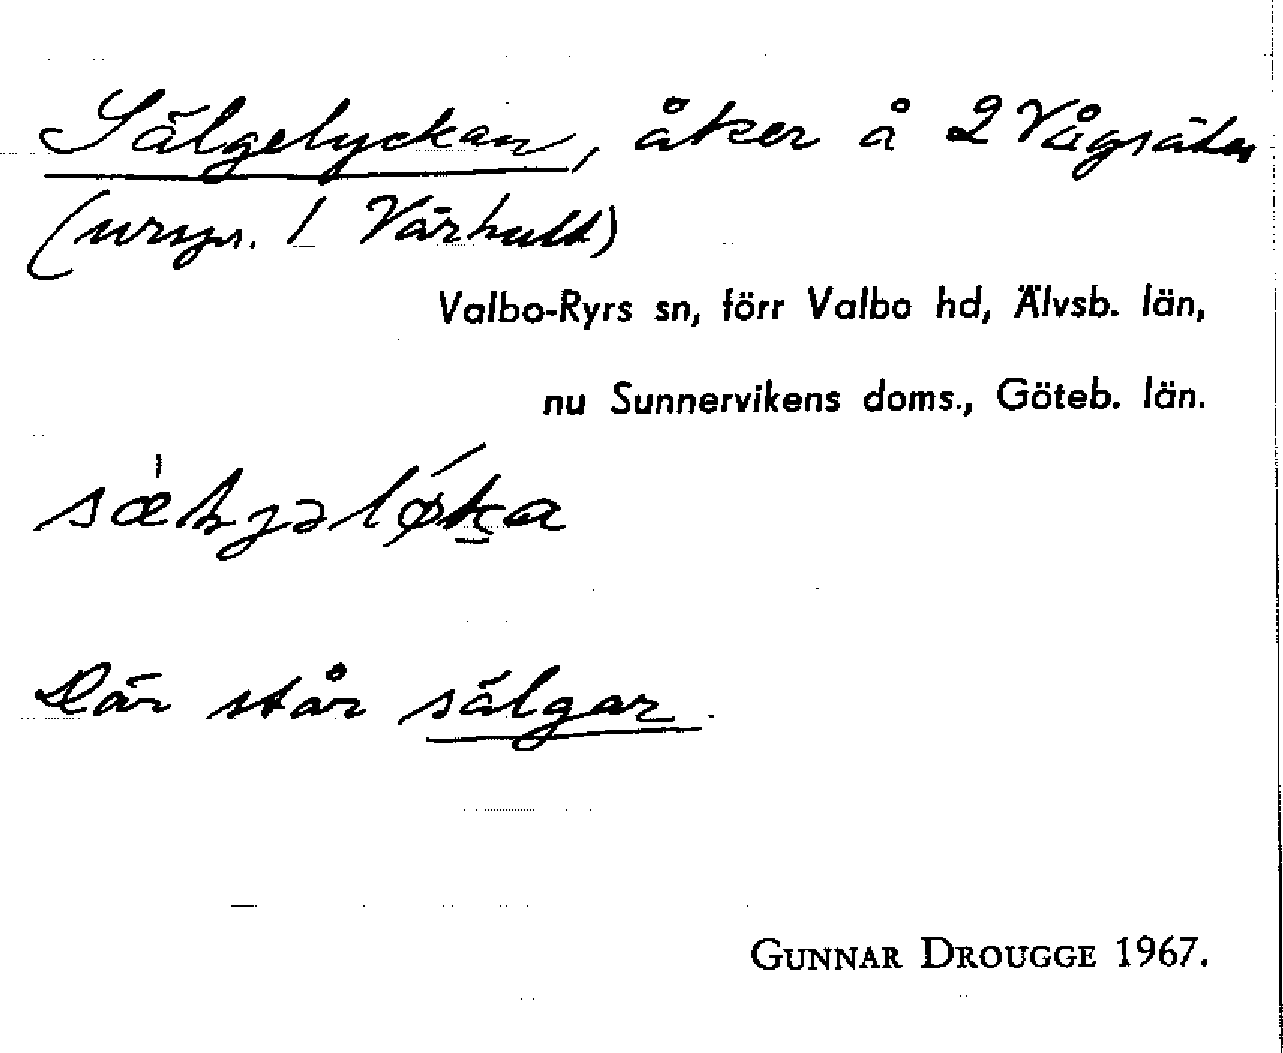 Sälgelyckan, åker å 2 Vågsäter
(urspr. 1 Värhult)
Valbo-Ryrs sn, förr Valbo hd, Älvsb. län,
nu Sunnervikens doms., Göteb. län.
Där står sälgar.
GUNNAR DROUGGE 1967.